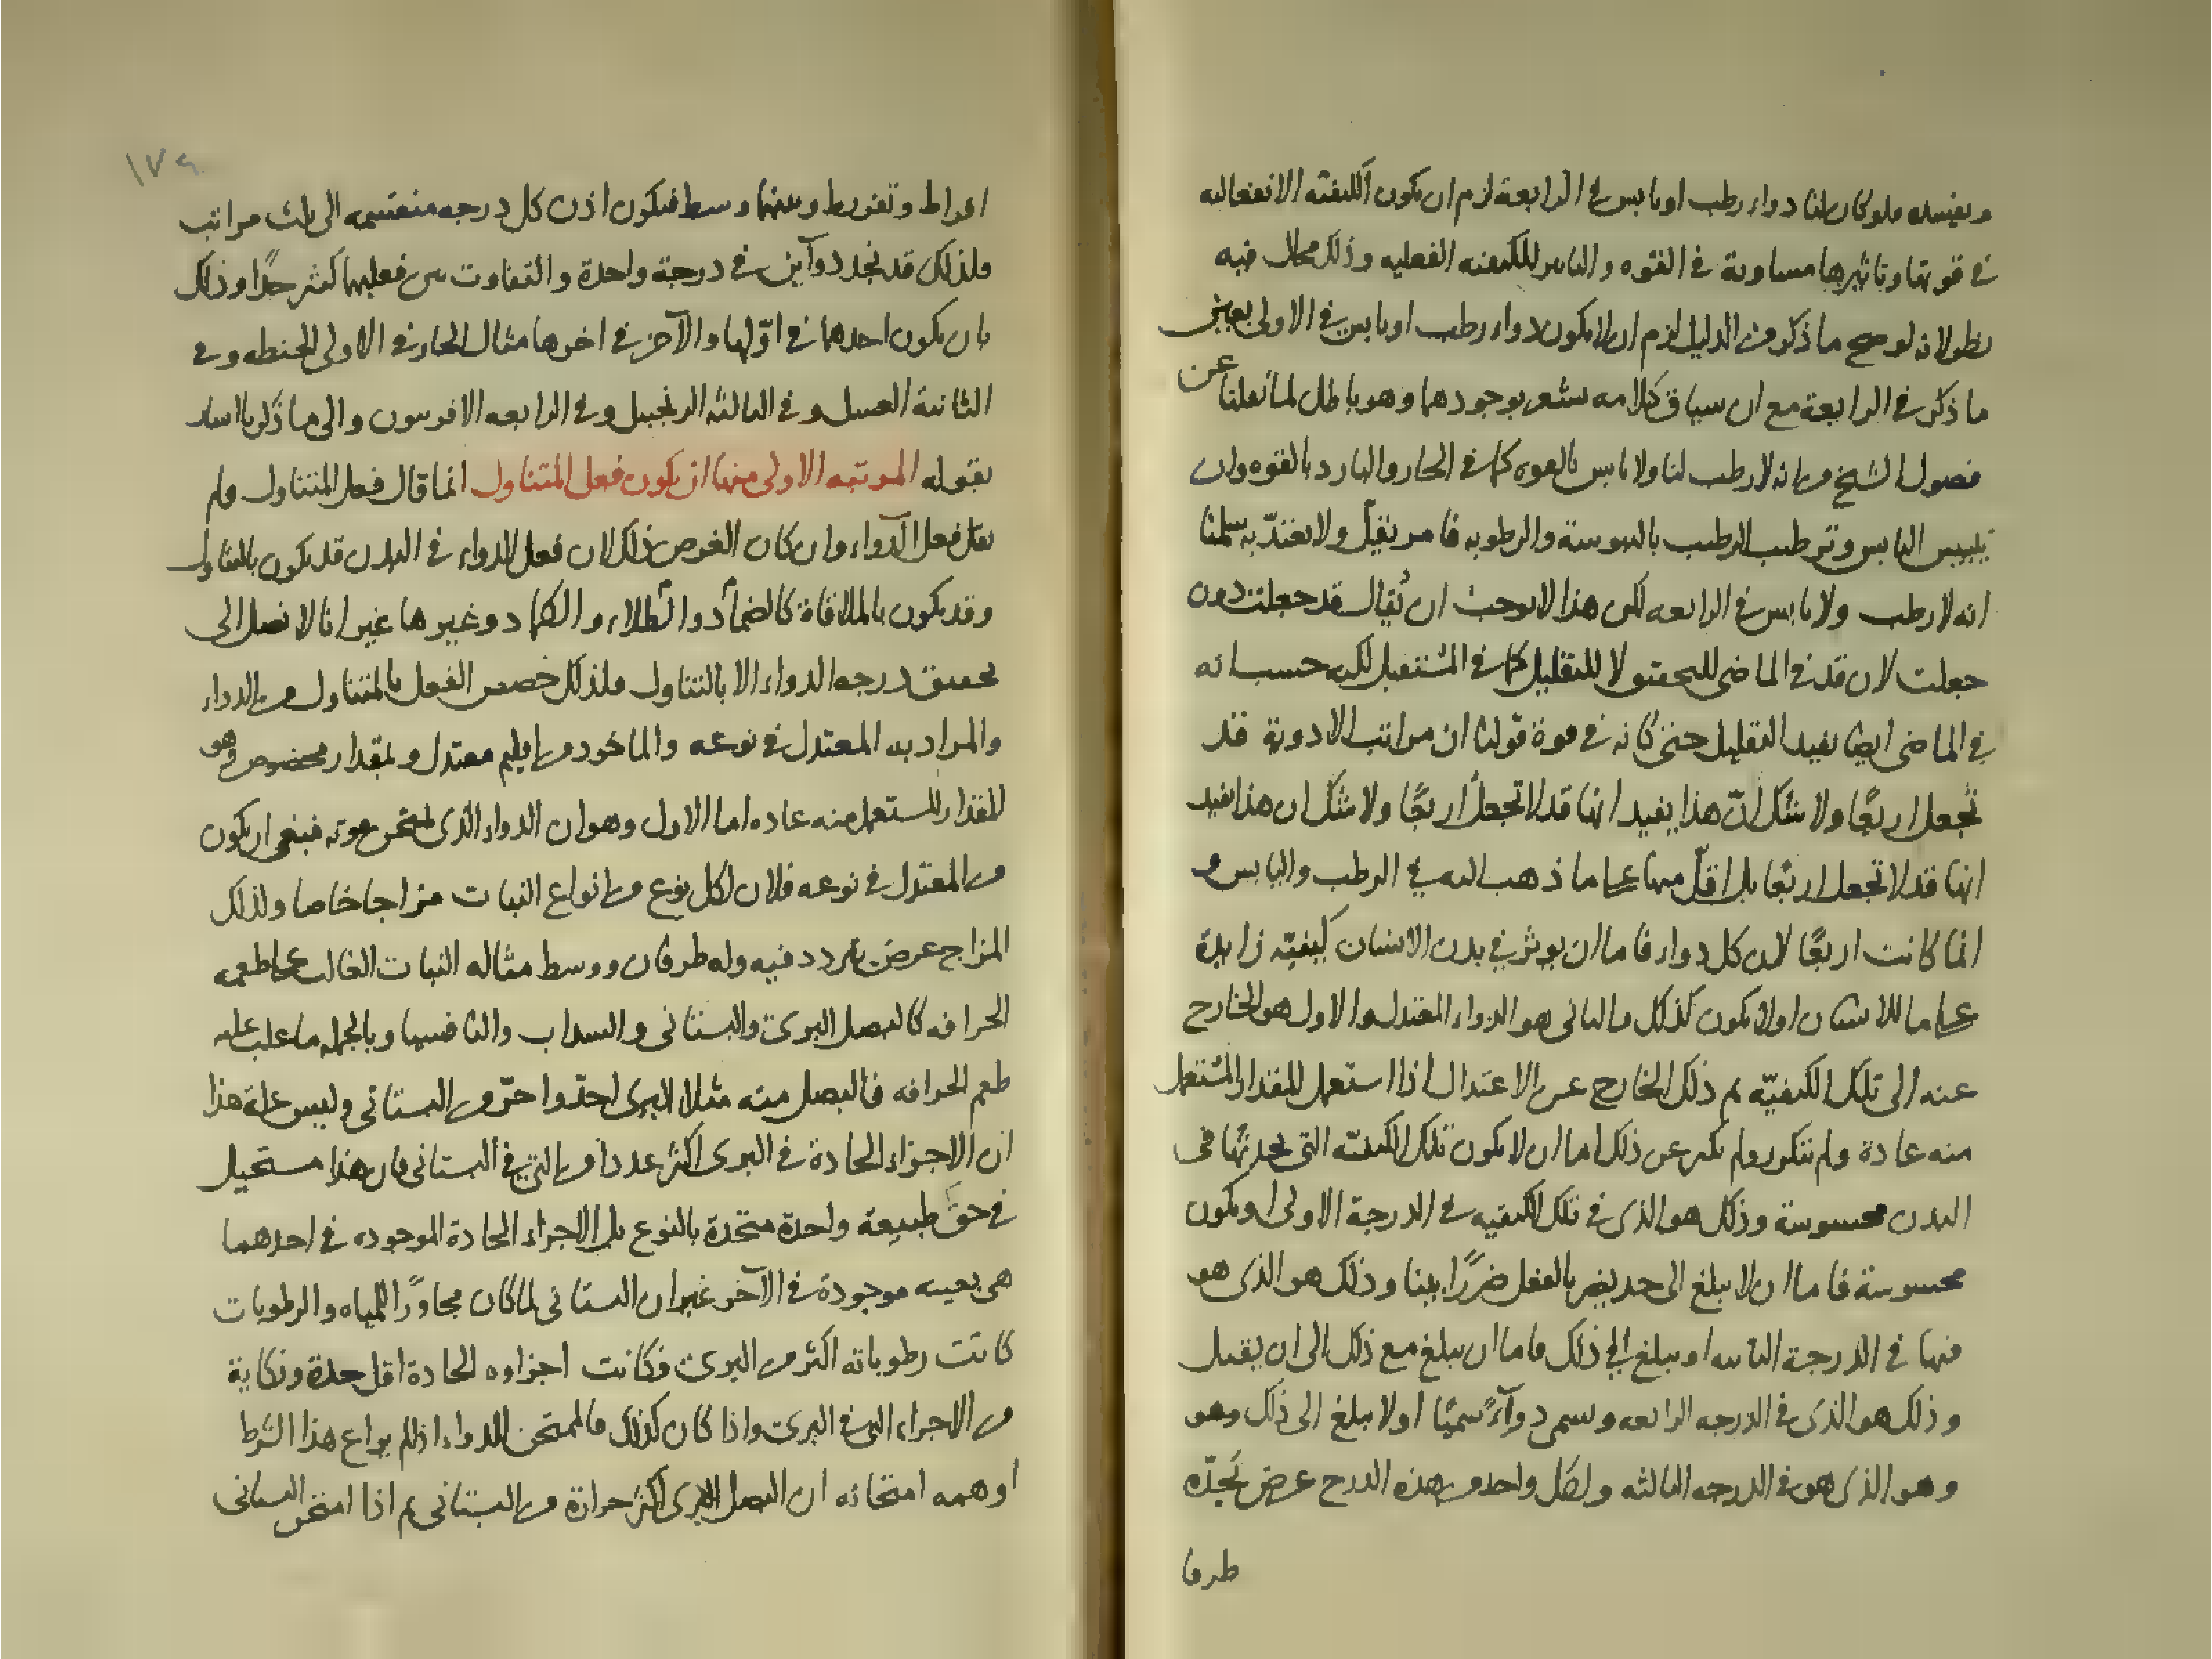 ويفسده فلو كان لنا دواء رطب او يابس في الرابعة لزم ان يكون الكيفية الانفعالية
في قوتها وتاثيرها مساوية في القوه والتاثير للكيفيه الفعليه وذلك محال فيه
نظر لانه لو صح ما ذكر من الدليل لزم ان لا يكون دواء رطب او يابس في الاولى بعين
ما ذكر في الرابعة مع ان سياق كلامه يشعر بوجودهما وهو باطل لما نقلنا عن
فصول الشيخ من انه لا رطب لنا ولا يابس بالقوه كما في الحار والبارد بالقوه وان
تيبيس اليابس وترطيب الرطب باليبوسة والرطوبه فامر نقيل ولا يعتدّ به سلمنا
انه لا رطب ولا يابس في الرابعه لكن هذا لا يوجب ان يُقال قد جعلت دون
جعلت لان قد في الماضى للتحقيق لا للتقليل كما في المستقبل لكنه حسب انه
في الماضى ايضا يفيد التقليل حتى كانه في قوة قولنا ان مراتب الادوية قد
تُجعل اربعًا ولا شك انّ هذا يفيد انها قد لا تجعل اربعًا ولا شك ان هذا يفيد
انها قد لا تجعل اربعًا بل اقلّ منها على ما ذهب اليه في الرطب واليابس و
انما كانت اربعًا لان كل دواء فاما ان يوثر في بدن الانسان كيفيّه زايدة
على ما للانسان اولا يكون كذلك والثانى هو الدواء المعتدل والاول هو الخارج
عنه الى تلك الكيفيّه ثم ذلك الخارج عن الاعتدال اذا استعمل المقدار المستعمل
منه عادة ولم يتكرر ولم يكثر عن ذلك اما ان لا يكون تلك الكيفيّه التى يحدثها في
البدن محسوسة وذلك هو الذى في تلك الكيفيه في الدرجة الاولى او يكون
محسوسة فاما ان لا يبلغ الى حد يضر بالفعل ضررًا بينا وذلك هو الذى هو
فيها في الدرجة الثانيه او يبلغ الى ذلك فاما ان يبلغ مع ذلك الى ان يقتل
وذلك هو الذى في الدرجه الرابعه ويسمى دوآءً سميًّا اولا يبلغ الى ذلك وهو
وهو الذى هو في الدرجه الثالثه ولكل واحد من هذه الدرج عرض يَحُدّه
طرفا
١٧٩
افراط وتفريط وبينهما وسط فيكون اذن كل درجه منقسمه الى ثلث مراتب
فلذلك قد نجد دوآين في درجة واحدة والتفاوت بين فعليهما كثير جدًا وذلك
بان يكون احدهما في اوّلها والآخر في اخرها مثال الحار في الاولى الحنطه وفي
الثانية العسل وفي الثالثه الزنجبيل وفي الرابعه الافربيون والى ما ذكرنا اشار
بقوله المرتبه الاولى منها ان يكون فعل المتناول انما قال فعل المتناول ولم
يقل فعل الدواء وان كان الغرض ذلك لان فعل الدواء في البدن قد يكون بالتناول
وقد يكون بالملاقاة كالضماد والطلاء والكماد وغيرها غير انا لا نصل الى
تحقيق درجه الدواء الا بالتناول فلذلك خصص الفعل بالمتناول من الدواء
والمراد به المعتدل في نوعه والماخوذ من اقليم معتدل وبمقدار مخصوص وهو
المقدار المستعمل منه عاده اما الاول وهو ان الدواء الذى يمتحن قوته فينبغى ان يكون
من المعتدل في نوعه فلان لكل نوع من انواع النبات مزاجا خاصا ولذلك
المزاج عرض يتردد فيه وله طرفان ووسط مثاله النبات الغالب على طعمه
الحرافه كالبصل البرى والبستانى والسداب والثافسيا وبالجمله ما غلب عليه
طعم الحرافه فالبصل منه مثلا البرى احدّ واحرّ من البستانى وليس علة هذا
ان الاجزاء الحادة في البرى اكثر عددا من التى في البستانى فان هذا مستحيل
في حق طبيعة واحدة متحدة بالنوع بل الاجزاء الحادة الموجوده في احدهما
هى بعينه موجودة في الآخر غير ان البستانى لما كان مجاورًا للمياه والرطوبات
كانت رطوباته اكثر من البرى فكانت اجزاوه الحادة اقل حدة ونكاية
من الاجزاء التى في البرى واذا كان كذلك فالممتحن للدواء اذا لم يراع هذا الشرط
اوهمه امتحانه ان البصل البرى اكثر حرارة من البستانى ثم اذا امتحن البستانى